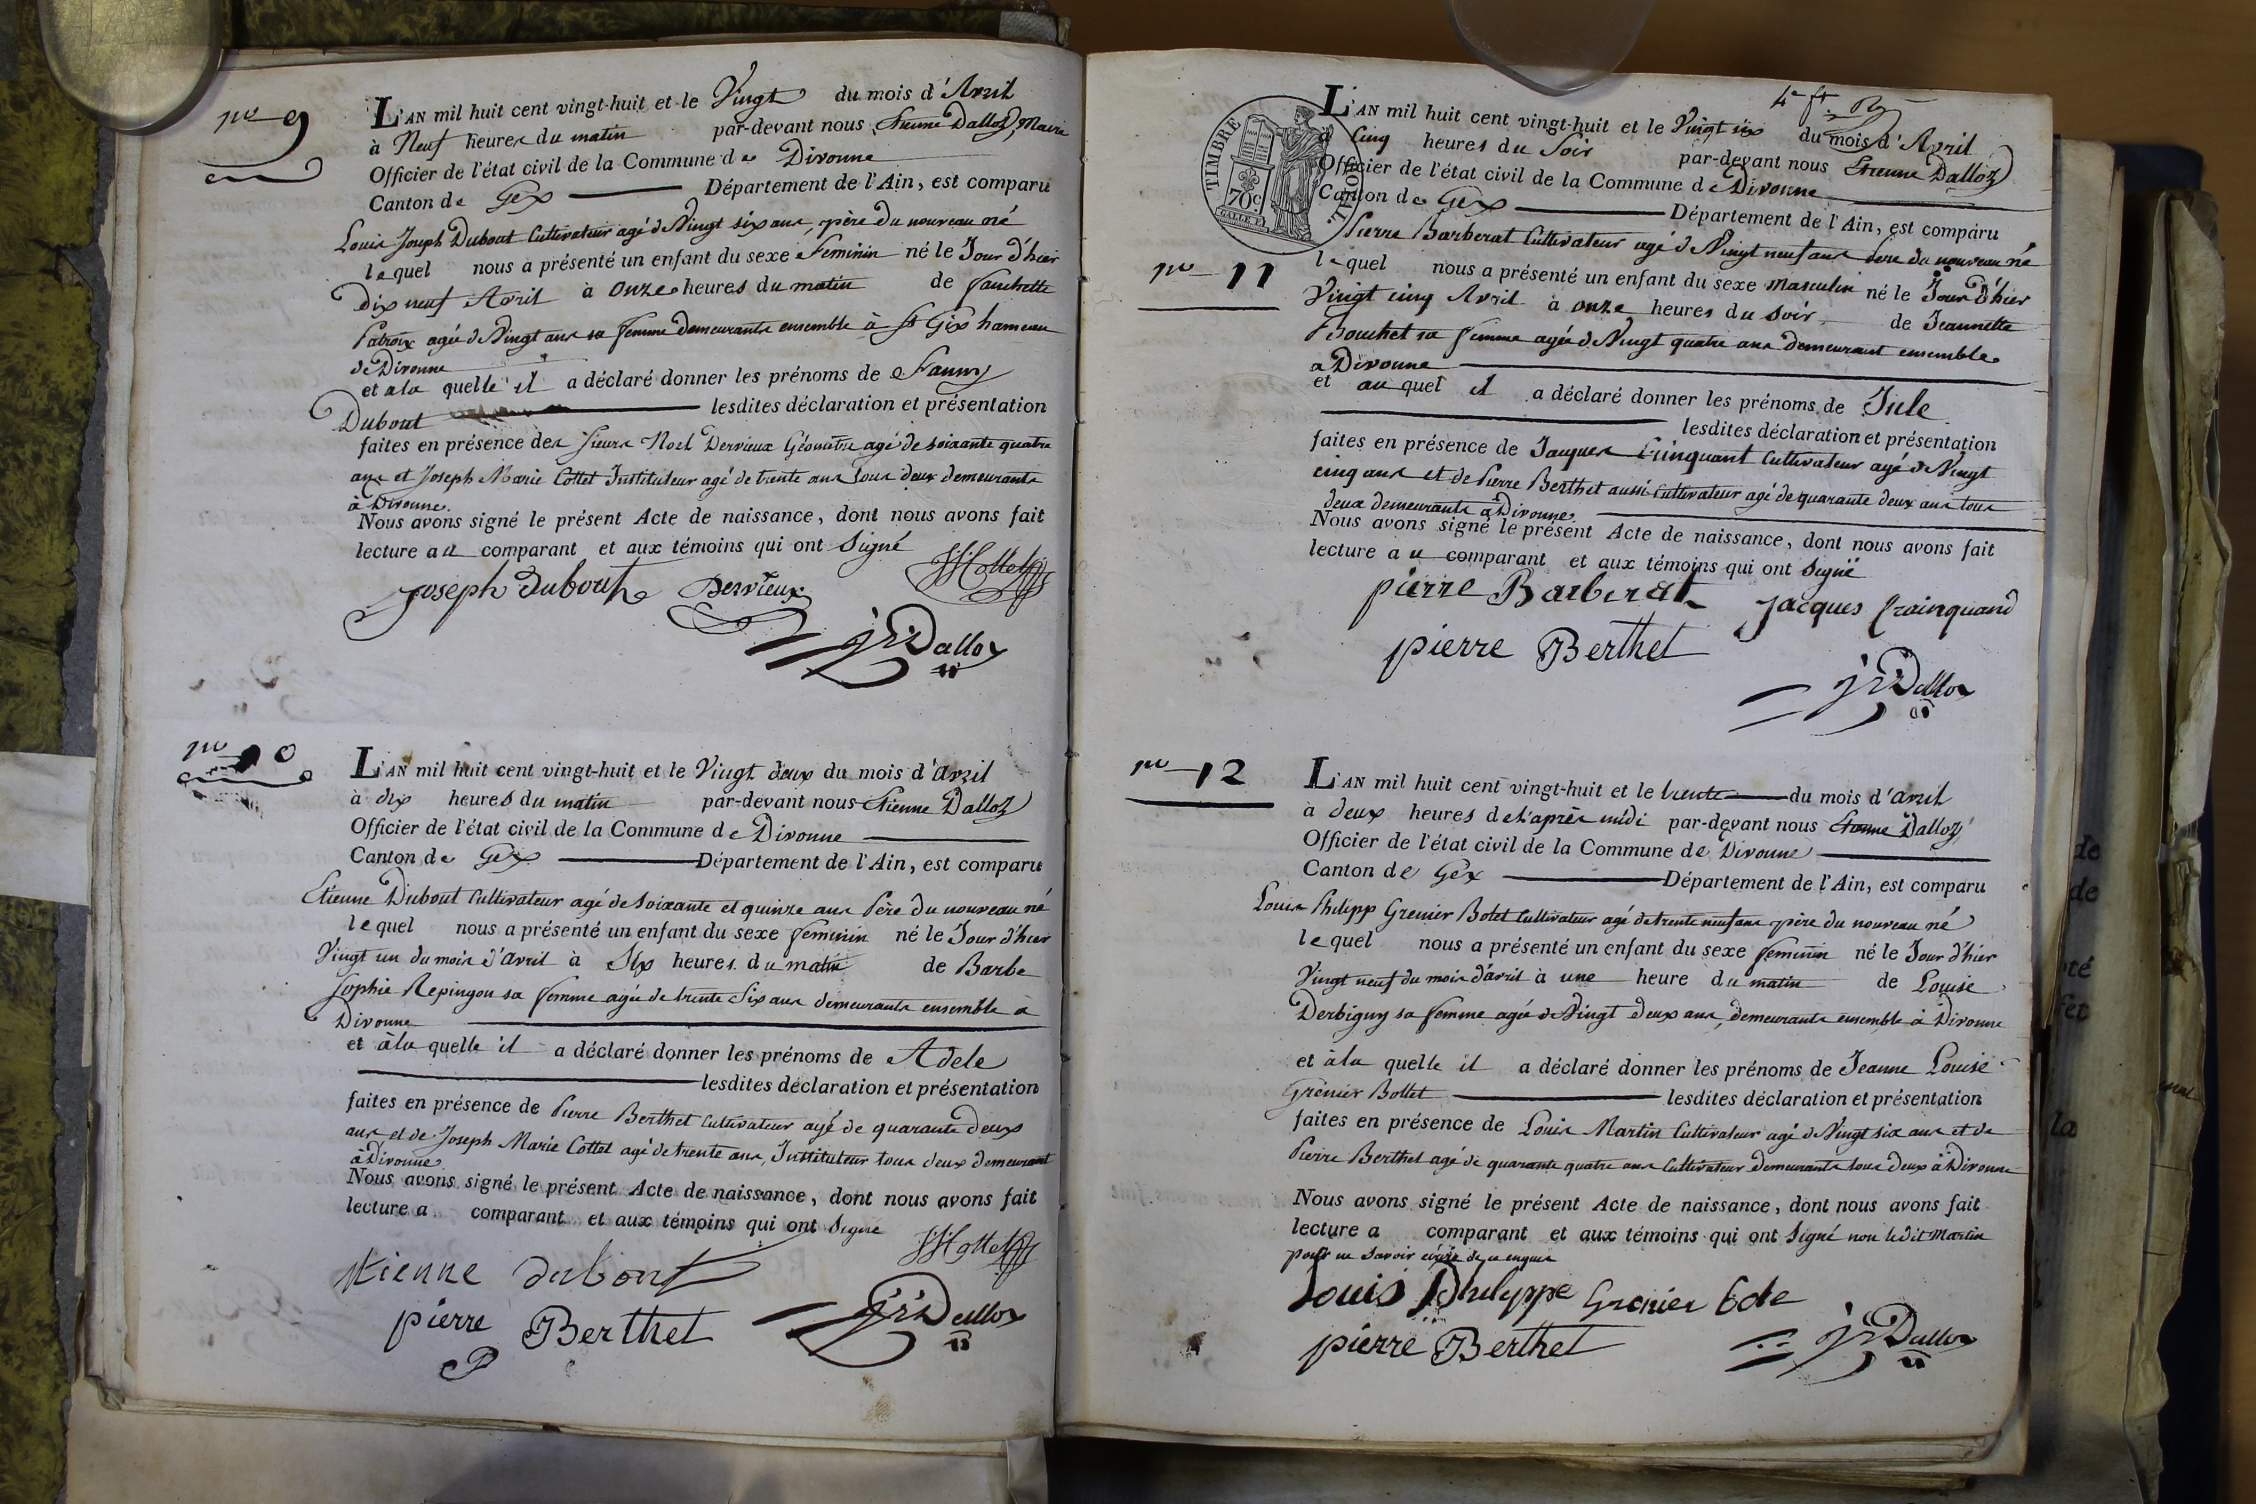 no 9
L'AN mil huit cent vingt-huit et le Vingt du mois d'Avril
à Neuf heures du matin par-devant nous Etienne Dalloz, Maire
Officier de l'état civil de la Commune de Divonne
Canton de Gex Département de l'Ain, est comparu
Louis Joseph Dubout Cultivateur agé de Vingt six ans, père du nouveau né
lequel nous a présenté un enfant du sexe Feminin né le Jour d'hier
dix neuf Avril à onze heures du matin de
agée de Vingt ans sa femme demeurants ensemble à st Gix hameau
de Divonne
et a la quelle il a déclaré donner les prénoms de Fanny
Dubout lesdites déclaration et présentation
faites en présence des sieurs Noel Dervieux Géometre agé de soixante quatre
ans et Joseph Marie Cottet Instituteur agé de trente ans tous deux demeurants
à Divonne.
Nous avons signé le présent Acte de naissance, dont nous avons fait
lecture au comparant et aux témoins qui ont signé
Joseph Dubout Dervieux JMCottet
Dalloz
no 10
L'AN mil huit cent vingt-huit et le Vingt deux du mois d'avril
à dix heures du matin par-devant nous Etienne Dalloz
Officier de l'état civil de la Commune de Divonne
Canton de Gex Département de l'Ain, est comparu
Etienne Dubout Cultivateur agé de soixante et quinze ans Père du nouveau né
lequel nous a présenté un enfant du sexe feminin né le Jour d'hier
Vingt un du mois d'avril à Six heures du matin de Barbe
Sophie Repingon sa femme agée de trente Six ans demeurants ensemble à
Divonne
et à la quelle il a déclaré donner les prénoms de Adele
lesdites déclaration et présentation
faites en présence de Pierre Berthet Cultivateur agé de quarante deux
ans et de Joseph Marie Cottet agé de trente ans, Instituteur tous deux demeurant
à Divonne
Nous avons signé le présent Acte de naissance, dont nous avons fait
lecture a comparant et aux témoins qui ont signé
JMCottet
Etienne dubout
pierre Berthet Dalloz
TIMBRE ROYAL
70c
L'AN mil huit cent vingt-huit et le Vingt six du mois d'Avril
à Cinq heures du Soir par-devant nous Etienne Dalloz
Officier de l'état civil de la Commune de Divonne
Canton de Gex Département de l'Ain, est comparu
Pierre Barberat Cultivateur agé de Vingt neuf ans Père du nouveau né
no 11
lequel nous a présenté un enfant du sexe masculin né le Jour d'hier
Vingt cinq Avril à onze heures du soir de Jeannette
Bouchet sa femme agée de Vingt quatre ans demeurant ensemble
a Divonne
et au quel il a déclaré donner les prénoms de Jule
lesdites déclaration et présentation
faites en présence de Jacques Crinquant Cultivateur agé de Vingt
cinq ans et de Pierre Berthet aussi Cultivateur agé de quarante deux ans tous
deux demeurants à Divonne.
Nous avons signé le présent Acte de naissance, dont nous avons fait
lecture au comparant et aux témoins qui ont signé
pierre Barberat Jacques Crainquand
pierre Berthet
Dalloz
no 12
L'AN mil huit cent vingt-huit et le trente du mois d'avril
à deux heures de l'après midi par-devant nous Etienne Dalloz
Officier de l'état civil de la Commune de Divonne
Canton de Gex Département de l'Ain, est comparu
Louis Philipp Grenier Botet Cultivateur agé de trente neuf ans père du nouveau né
lequel nous a présenté un enfant du sexe feminin né le Jour d'hier
Vingt neuf du mois d'avril à une heure du matin de Louise
Derbigny sa femme agée de Vingt deux ans, demeurants ensemble à Divonne
et à la quelle il a déclaré donner les prénoms de Jeanne Louise
Grenier Bottet lesdites déclaration et présentation
faites en présence de Louis Martin Cultivateur agé de Vingt six ans et de
Pierre Berthet agé de quarante quatre ans Cultivateur demeurants tous deux à Divonne
Nous avons signé le présent Acte de naissance, dont nous avons fait
lecture a comparant et aux témoins qui ont signé non ledit Martin
pour ne savoir écrire de ce enquis
Louis Philyppe Grenier bote
pierre Berthet Dalloz